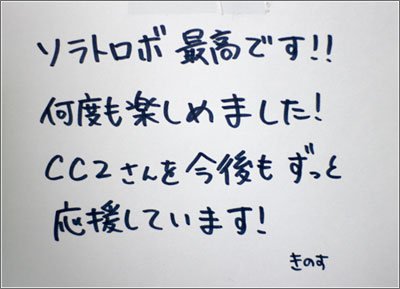 ソラトロボ 最高です!!
何度も楽しめました!
CC2さんを今後もずっと
応援しています!
きのす